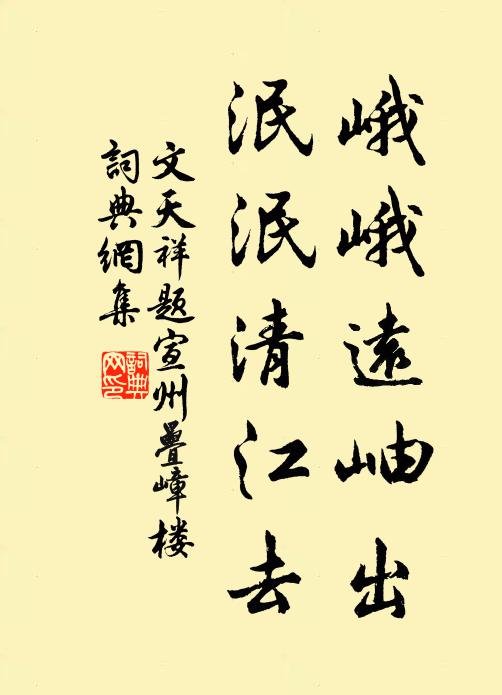 峨峨遠岫出
泯泯清江去
文天祥題宣州疊嶂楼
詞典網集
詞典
网印